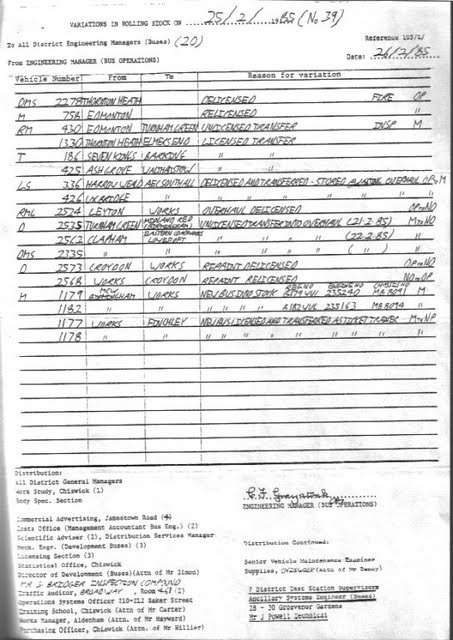 VARIATIONS IN ROLLING STOCK ON 25/2/1985 (No 39)
To All District Engineering Managers (Buses) (20)
Reference 103/2/
From ENGINEERING MANAGER (BUS OPERATIONS)
Date: 26/2/85
Vehicle Number From To Reason for variation
DMS 2278 THORNTON HEATH DELICENSED FIRE OP
M 758 EDMONTON RELICENSED "
RM 430 EDMONTON TURNHAM GREEN UNLICENSED TRANSFER INSP M
1330 THORNTON HEATH ELMERS END LICENSED TRANSFER
T 186 SEVEN KINGS BARKING " "
425 ASH GROVE WALTHAMSTOW " "
LS 336 HARROW WEALD AEC SOUTHALL DELICENSED AND TRANSFERRED - STORED AWAITING OVERHAUL OP to M
426 UXBRIDGE " " " " "
RML 2524 LEYTON WORKS OVERHAUL DELICENSED OP to NO
D 2535 TURNHAM GREEN MIDLAND RED (BIRMINGHAM) UNLICENSED TRANSFER INTO OVERHAUL (21-2-85) M to NO
2562 CLAPHAM EASTERN COACHWORKS LOWESTOFT " " " (22-2-85) "
DMS 2335 " " " " " ( " ) "
D 2573 CROYDON WORKS REPAINT DELICENSED OP to NO
2568 WORKS CROYDON REPAINT RELICENSED NO to OP
M 1179 MCW BIRMINGHAM WORKS NEW BUS INTO STOCK 235240 MB 8091 M
1182 " " " " 235163 MB 8094 "
1177 WORKS FINCHLEY NEW BUS LICENSED AND TRANSFERRED AS TICKET TRAINER M to NP
1178 " " " " " " " "
Distribution:
All District General Managers
Work Study, Chiswick (1)
Body Spec. Section
ENGINEERING MANAGER (BUS OPERATIONS)
Commercial Advertising, Jamestown Road (4)
Costs Office (Management Accountant Bus Eng.) (2)
Scientific Adviser (2), Distribution Services Manager
Mech. Engr. (Development Buses) (3)
Licensing Section (3)
Statistical Office, Chiswick
Director of Development (Buses)(Attn of Mr Simon)
MR J BRIDGER INSPECTION COMPOUND
Traffic Auditor, BROADWAY, Room
Operations Systems Officer 210-212 Baker Street
Training School, Chiswick (Attn of Mr Carter)
Works Manager, Aldenham (Attn of Mr Hayward)
Purchasing Officer, Chiswick (Attn of Mr Hillier)
Distribution Continued:
Senior Vehicle Maintenance Examiner
Supplies, CHISWICK (Attn of Mr Dewey)
7 District Test Station Supervisors
Ancillary Systems Engineer (Buses)
28 - 30 Grosvenor Gardens
Mr J Powell Technical